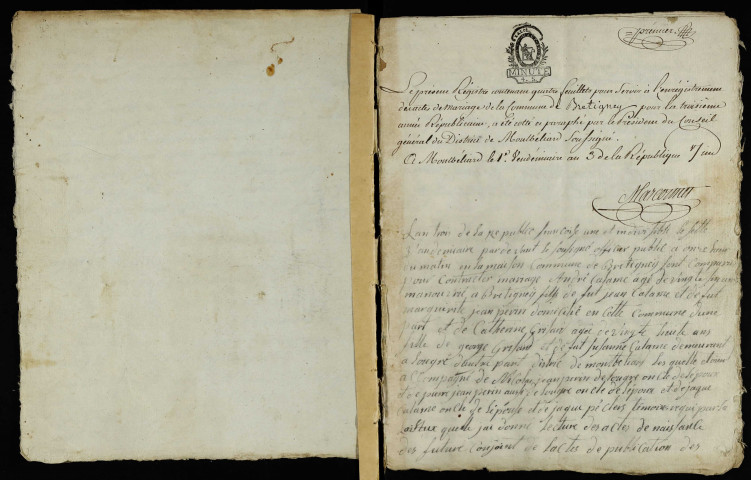 premier
MINUTE
Le présent Régistre contenant quatre feuillets pour Servir à l'enrégistrement
des actes de mariage de la Commune de Bretigney pour la troisième
année Républicaine, a été cotté et paraphé par le Président du Conseil
général du District de Montbéliard Soussigné.
A Montbéliard le 1er Vendémiaire an 3 de la République
Marconnet
Lan trois de la republic francoise une et indivisible le sette
vandemiaire par devant le soussigné officier public a onze heure
du matin en la maison Commune de Bretigney sont Comparu
pour Contracter mariage André Calame agé de vingt
manouvrié a Bretigney fils de fut jean Calame et de fut
marguerite jean perin domicilié en cette Commune dune
part et de Catherine Grisard agée de vingte huite ans
fille de george Grisard et de fut susanne Calame demeurant
a Longre dautre part District de montbeliard les quelle
a Compagné de jean perin de Longre oncle de lepoux
et de pierre jean perin aussi de Longre oncle de lepoux et de jaque
Calame oncle de lépouse et de jaque péclet témoin requi par le
quelle jai donné lecture des actes de naissance
des future Conjoint de lactes de publication des